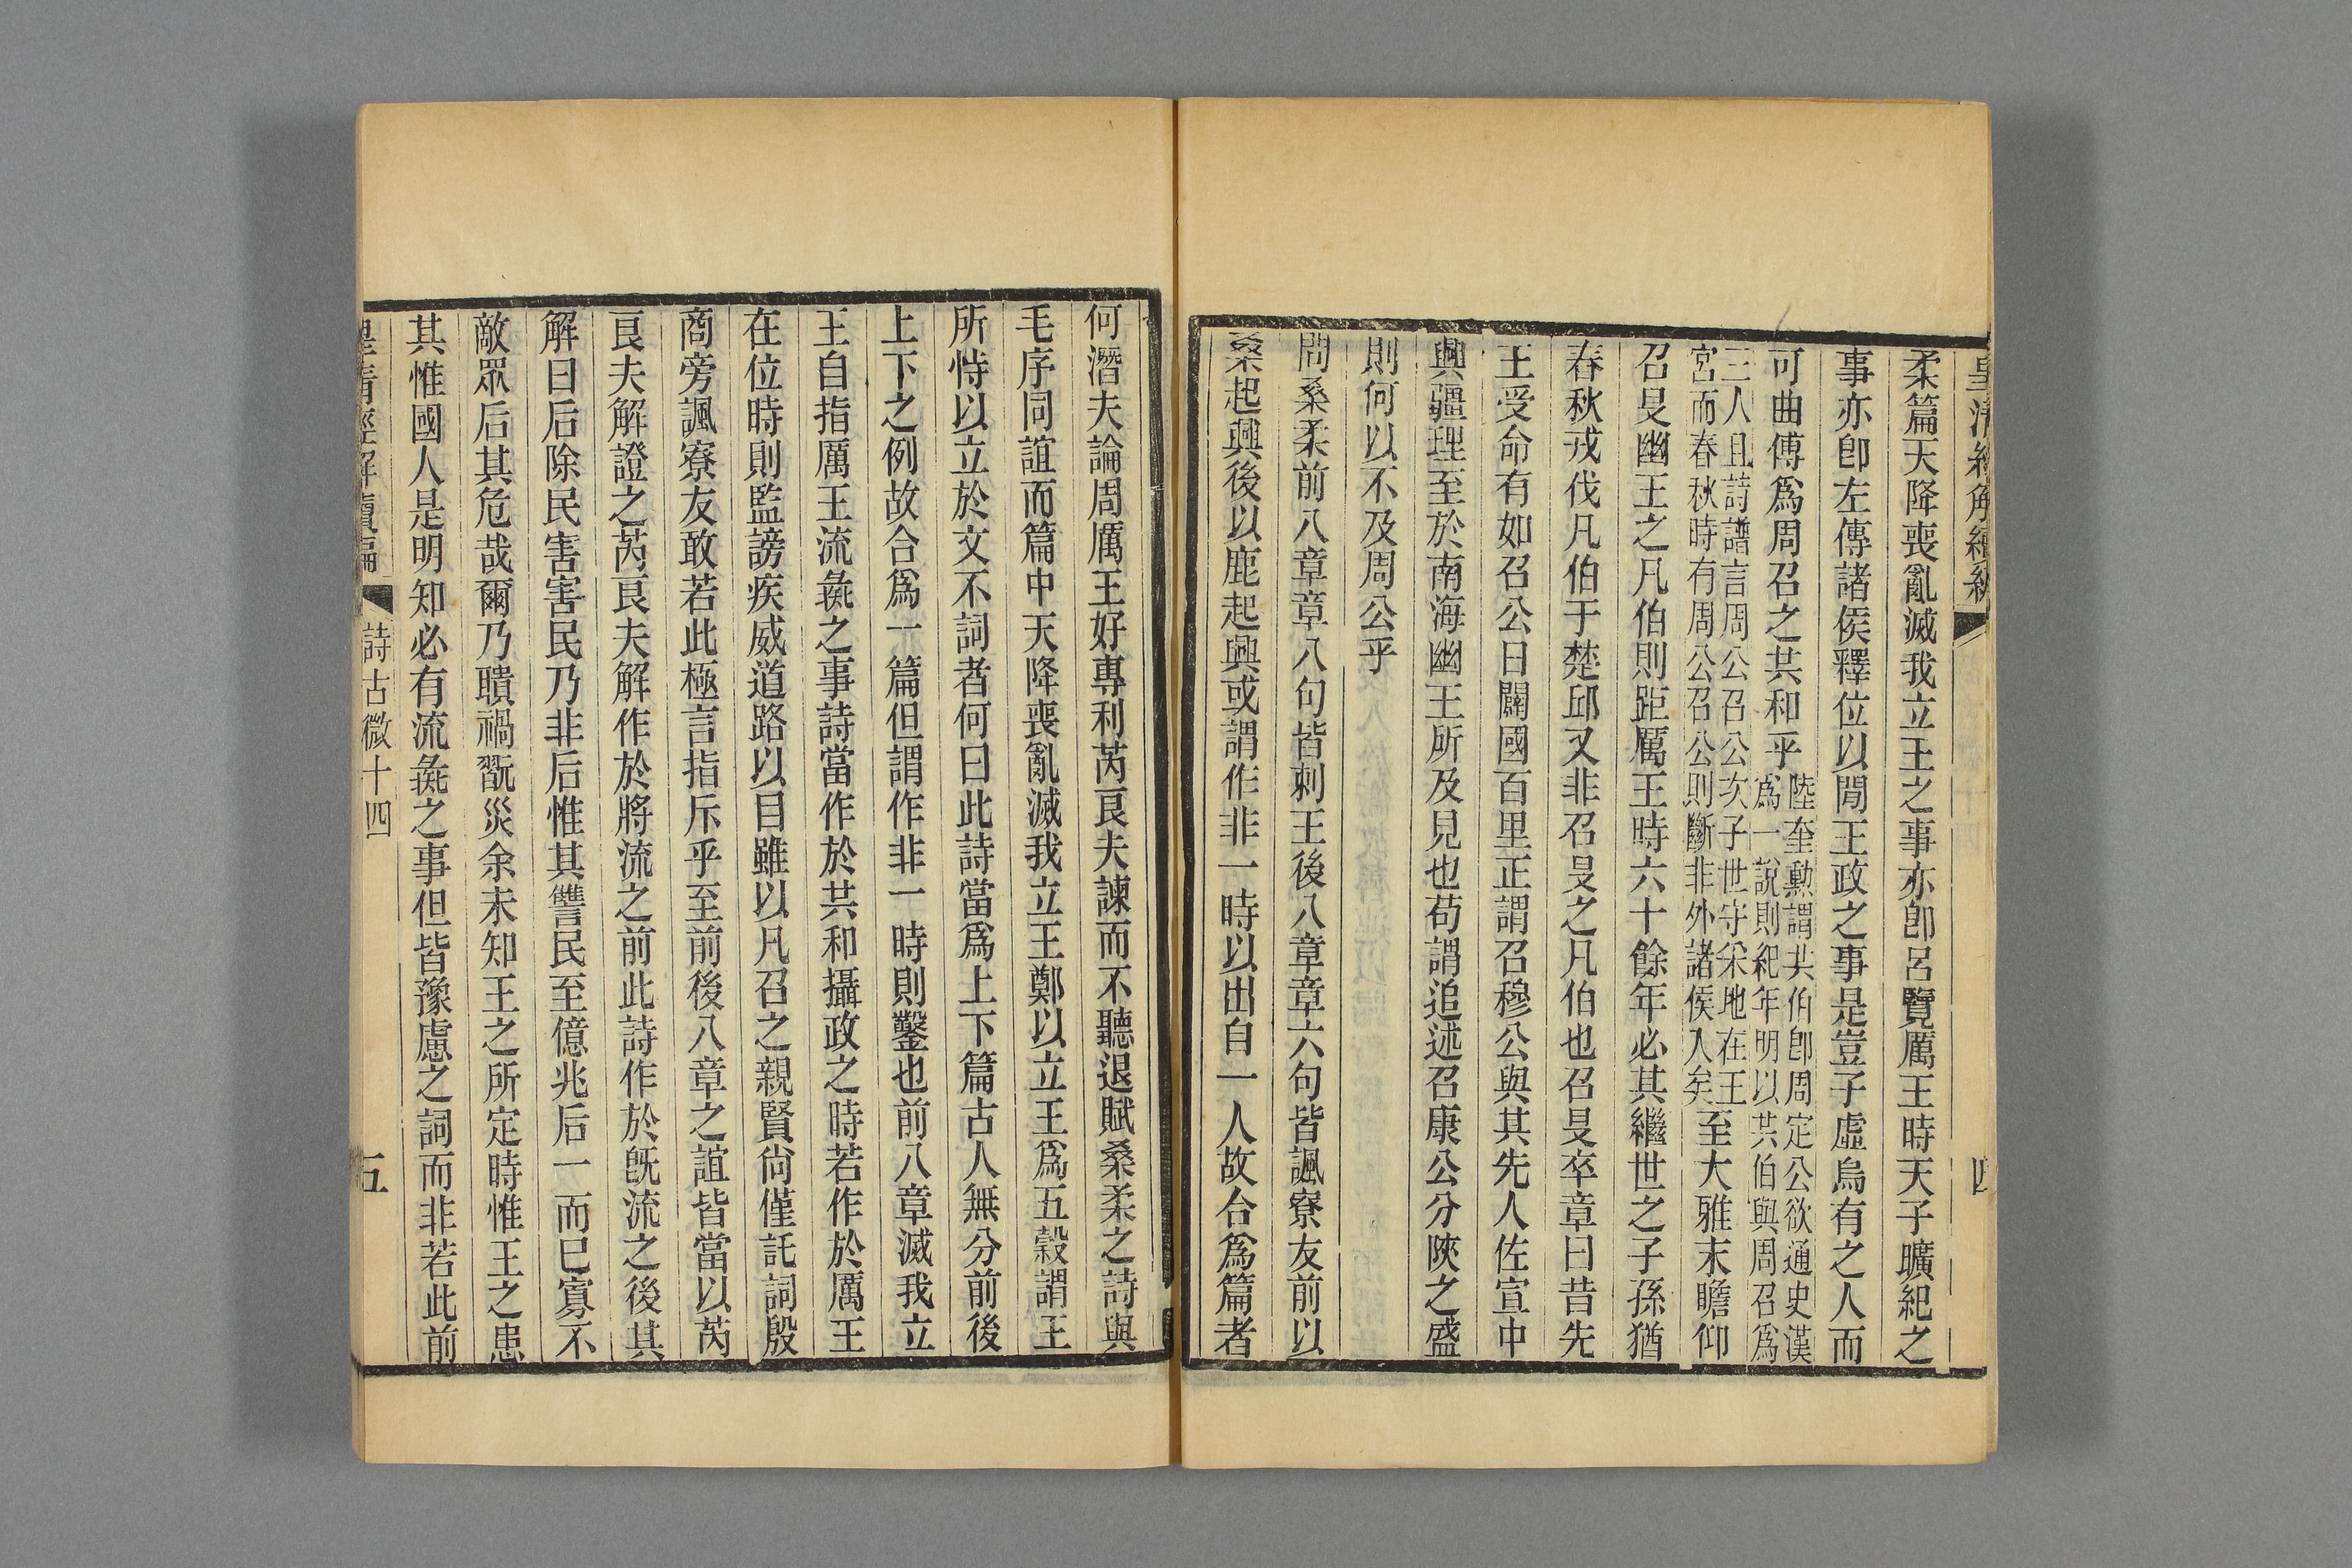 皇清經解續編
四
柔篇天降喪亂滅我立王之事亦卽呂覽厲王時天子曠紀之
事亦卽左傳諸侯釋位以閒王政之事是豈子虛烏有之人而
可曲傅爲周召之共和乎陸奎勳謂共伯卽周定公欲通史漢
爲一說則紀年明以共伯與周召爲
三人且詩譜言周公召公次子世守采地在王
宮而春秋時有周公召公則斷非外諸侯入矣至大雅末瞻仰
召旻幽王之凡伯則距厲王時六十餘年必其繼世之子孫猶
春秋戎伐凡伯于楚邱又非召旻之凡伯也召旻卒章曰昔先
王受命有如召公日闢國百里正謂召穆公與其先人佐宣中
興疆理至於南海幽王所及見也苟謂追述召康公分陝之盛
則何以不及周公乎
問桑柔前八章章八句皆刺王後八章章六句皆諷寮友前以
桑起興後以鹿起興或謂作非一時以出自一人故合爲篇者
何潛夫論周厲王好專利芮良夫諫而不聽退賦桑柔之詩與
毛序同誼而篇中天降喪亂滅我立王鄭以立王爲五穀謂王
所恃以立於文不詞者何曰此詩當爲上下篇古人無分前後
上下之例故合爲一篇但謂作非一時則鑿也前八章滅我立
王自指厲王流彘之事詩當作於共和攝政之時若作於厲王
在位時則監謗疾威道路以目雖以凡召之親賢尙僅託詞殷
商旁諷寮友敢若此極言指斥乎至前後八章之誼皆當以芮
良夫解證之芮良夫解作於將流之前此詩作於旣流之後其
解曰后除民害害民乃非后惟其讐民至億兆后一而已寡不
敵眾后其危哉爾乃聵禍翫災余未知王之所定時惟王之患
其惟國人是明知必有流彘之事但皆豫慮之詞而非若此前
皇清經解續編
詩古微十四
五